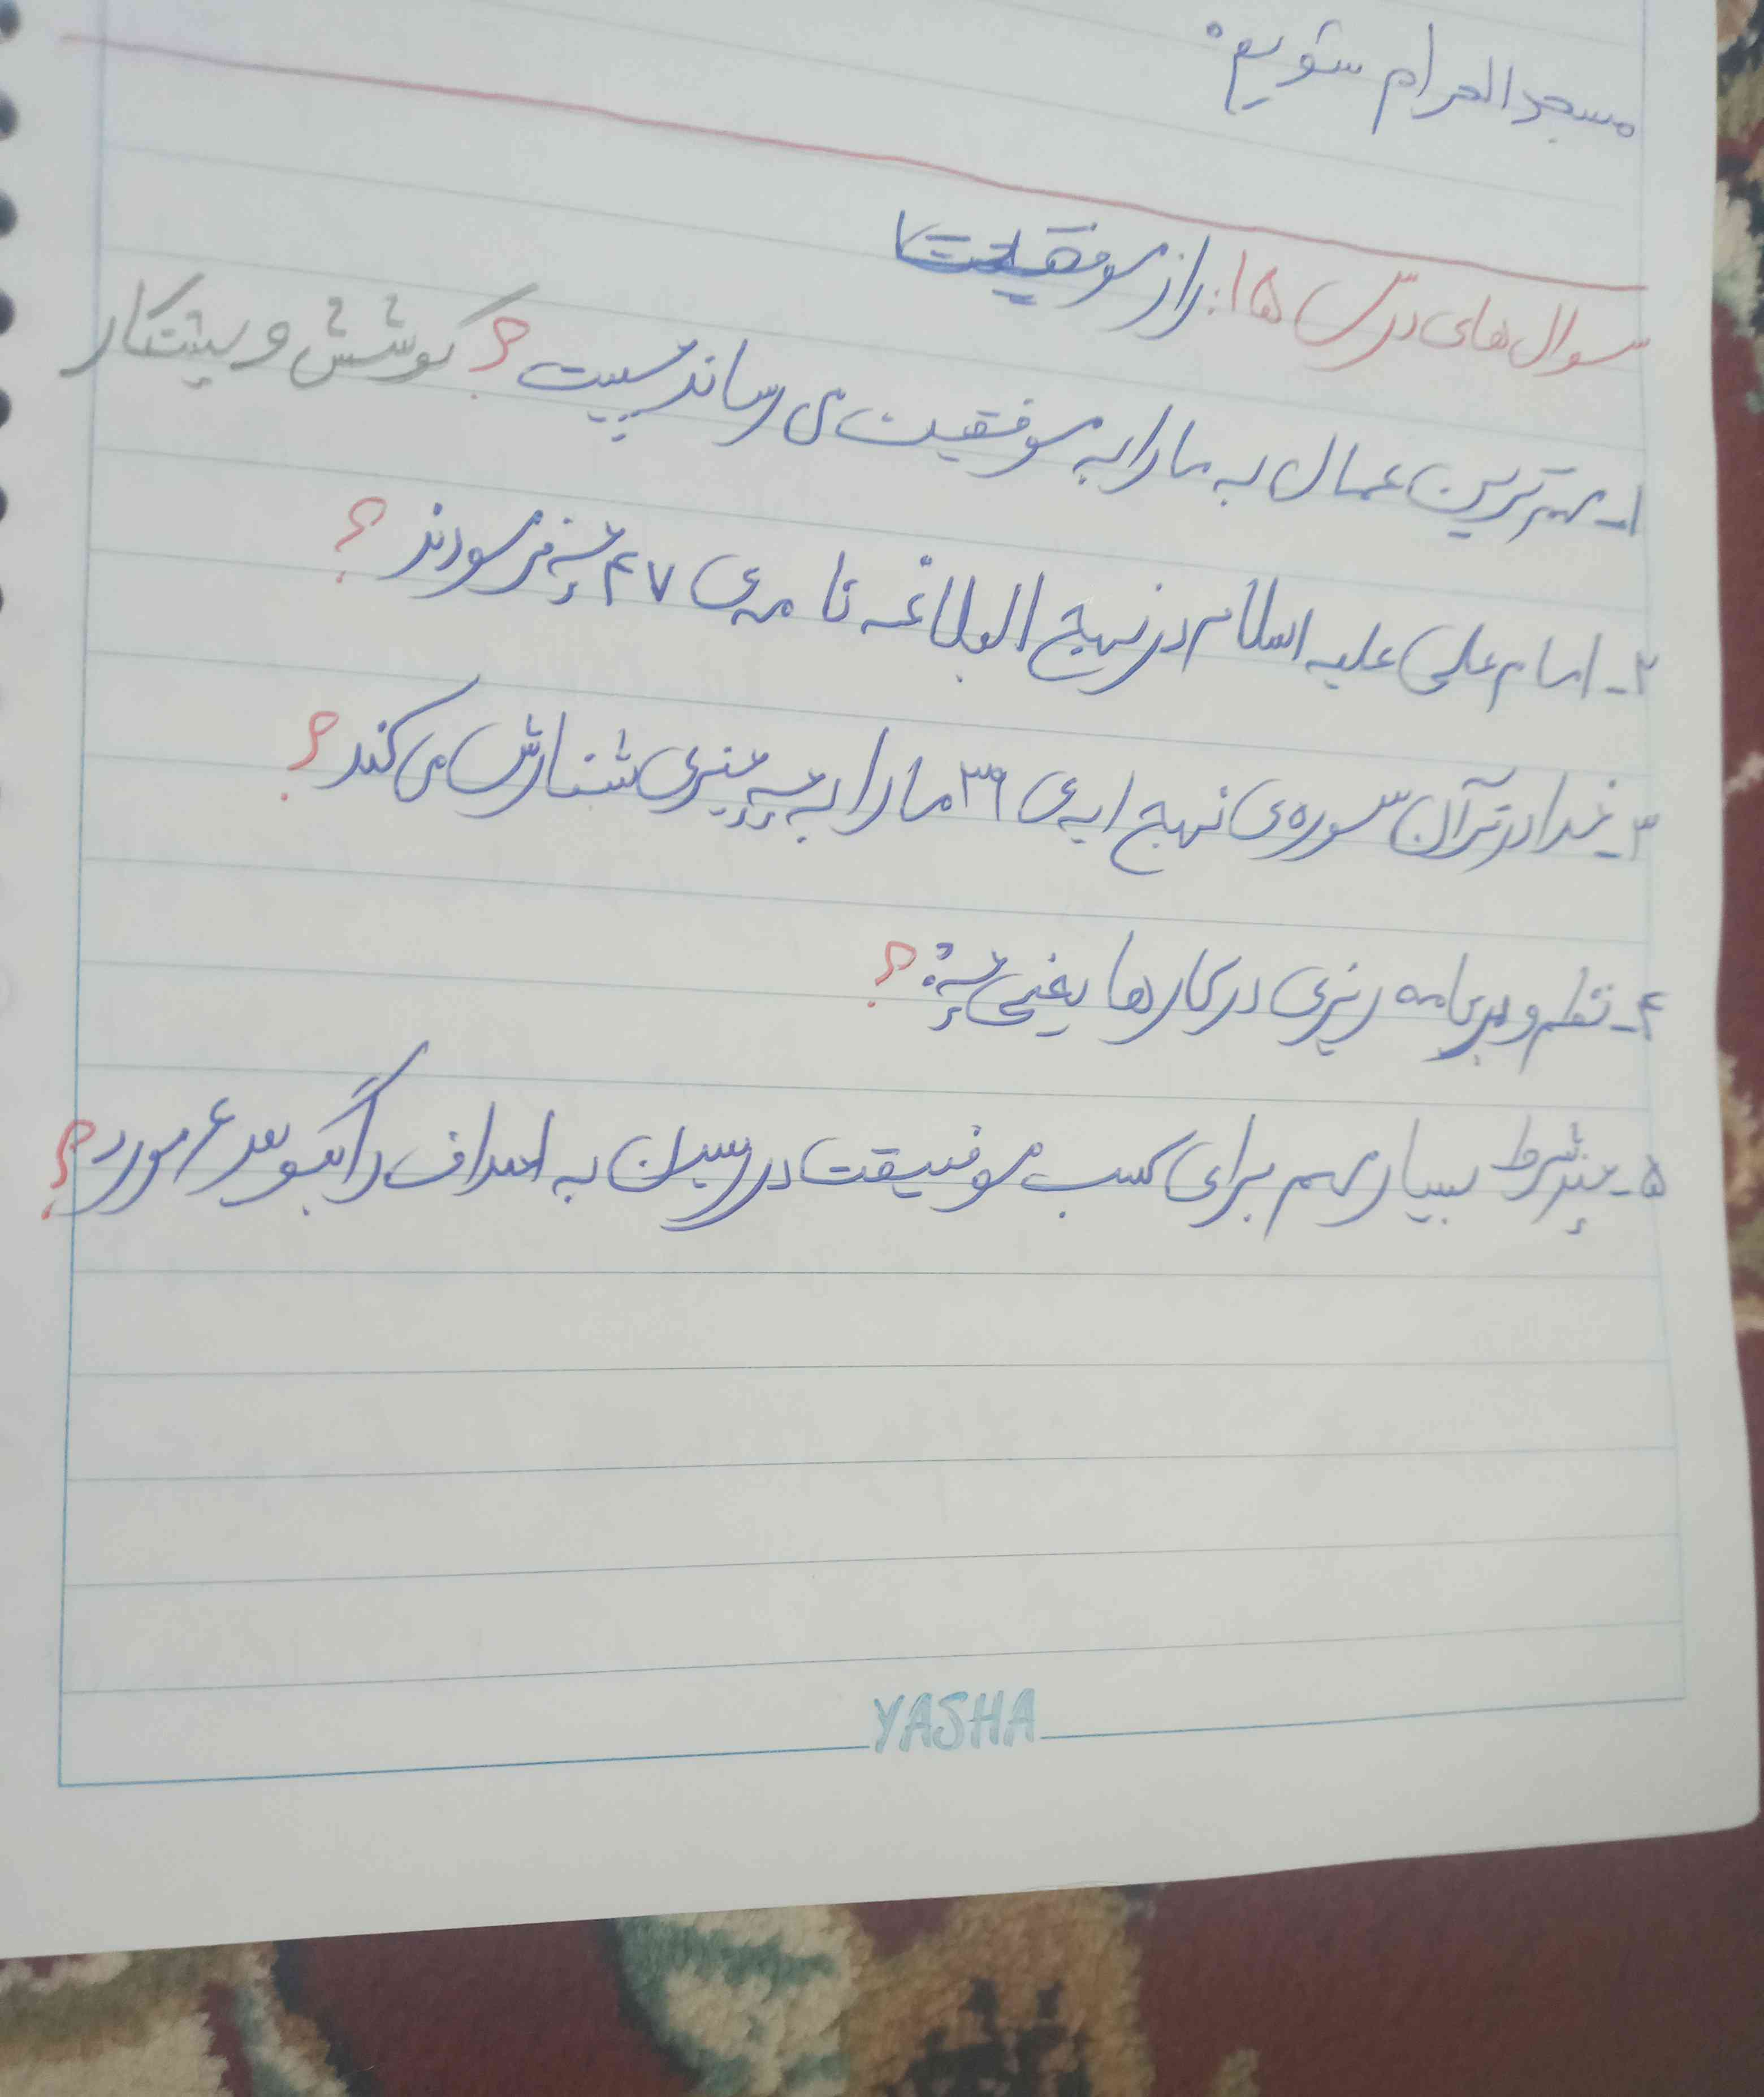 مسجد الحرام شویم.
سوال های درس ۱۵: راز موفقیت
۱ـ مهم ترین عمال که ما را به موفقیت می رساند چیست؟ کوشش و پشتکار
۲ـ امام علی علیه اسلام در نهج البلاغه نا مه ی ۴۷ چه فرمودند؟
۳ـ خدا در قرآن سوره ی نهج ایه ی ۳۹ ما را به چه چیزی شنارش می کند؟
۴ـ نظم و برنامه ریزی در کارها یعنی چه؟
۵ـ شرط بسیار مهم برای کسب موفیقت در رسیدن به اهداف را بگوید ۴ مورد؟
YASHA